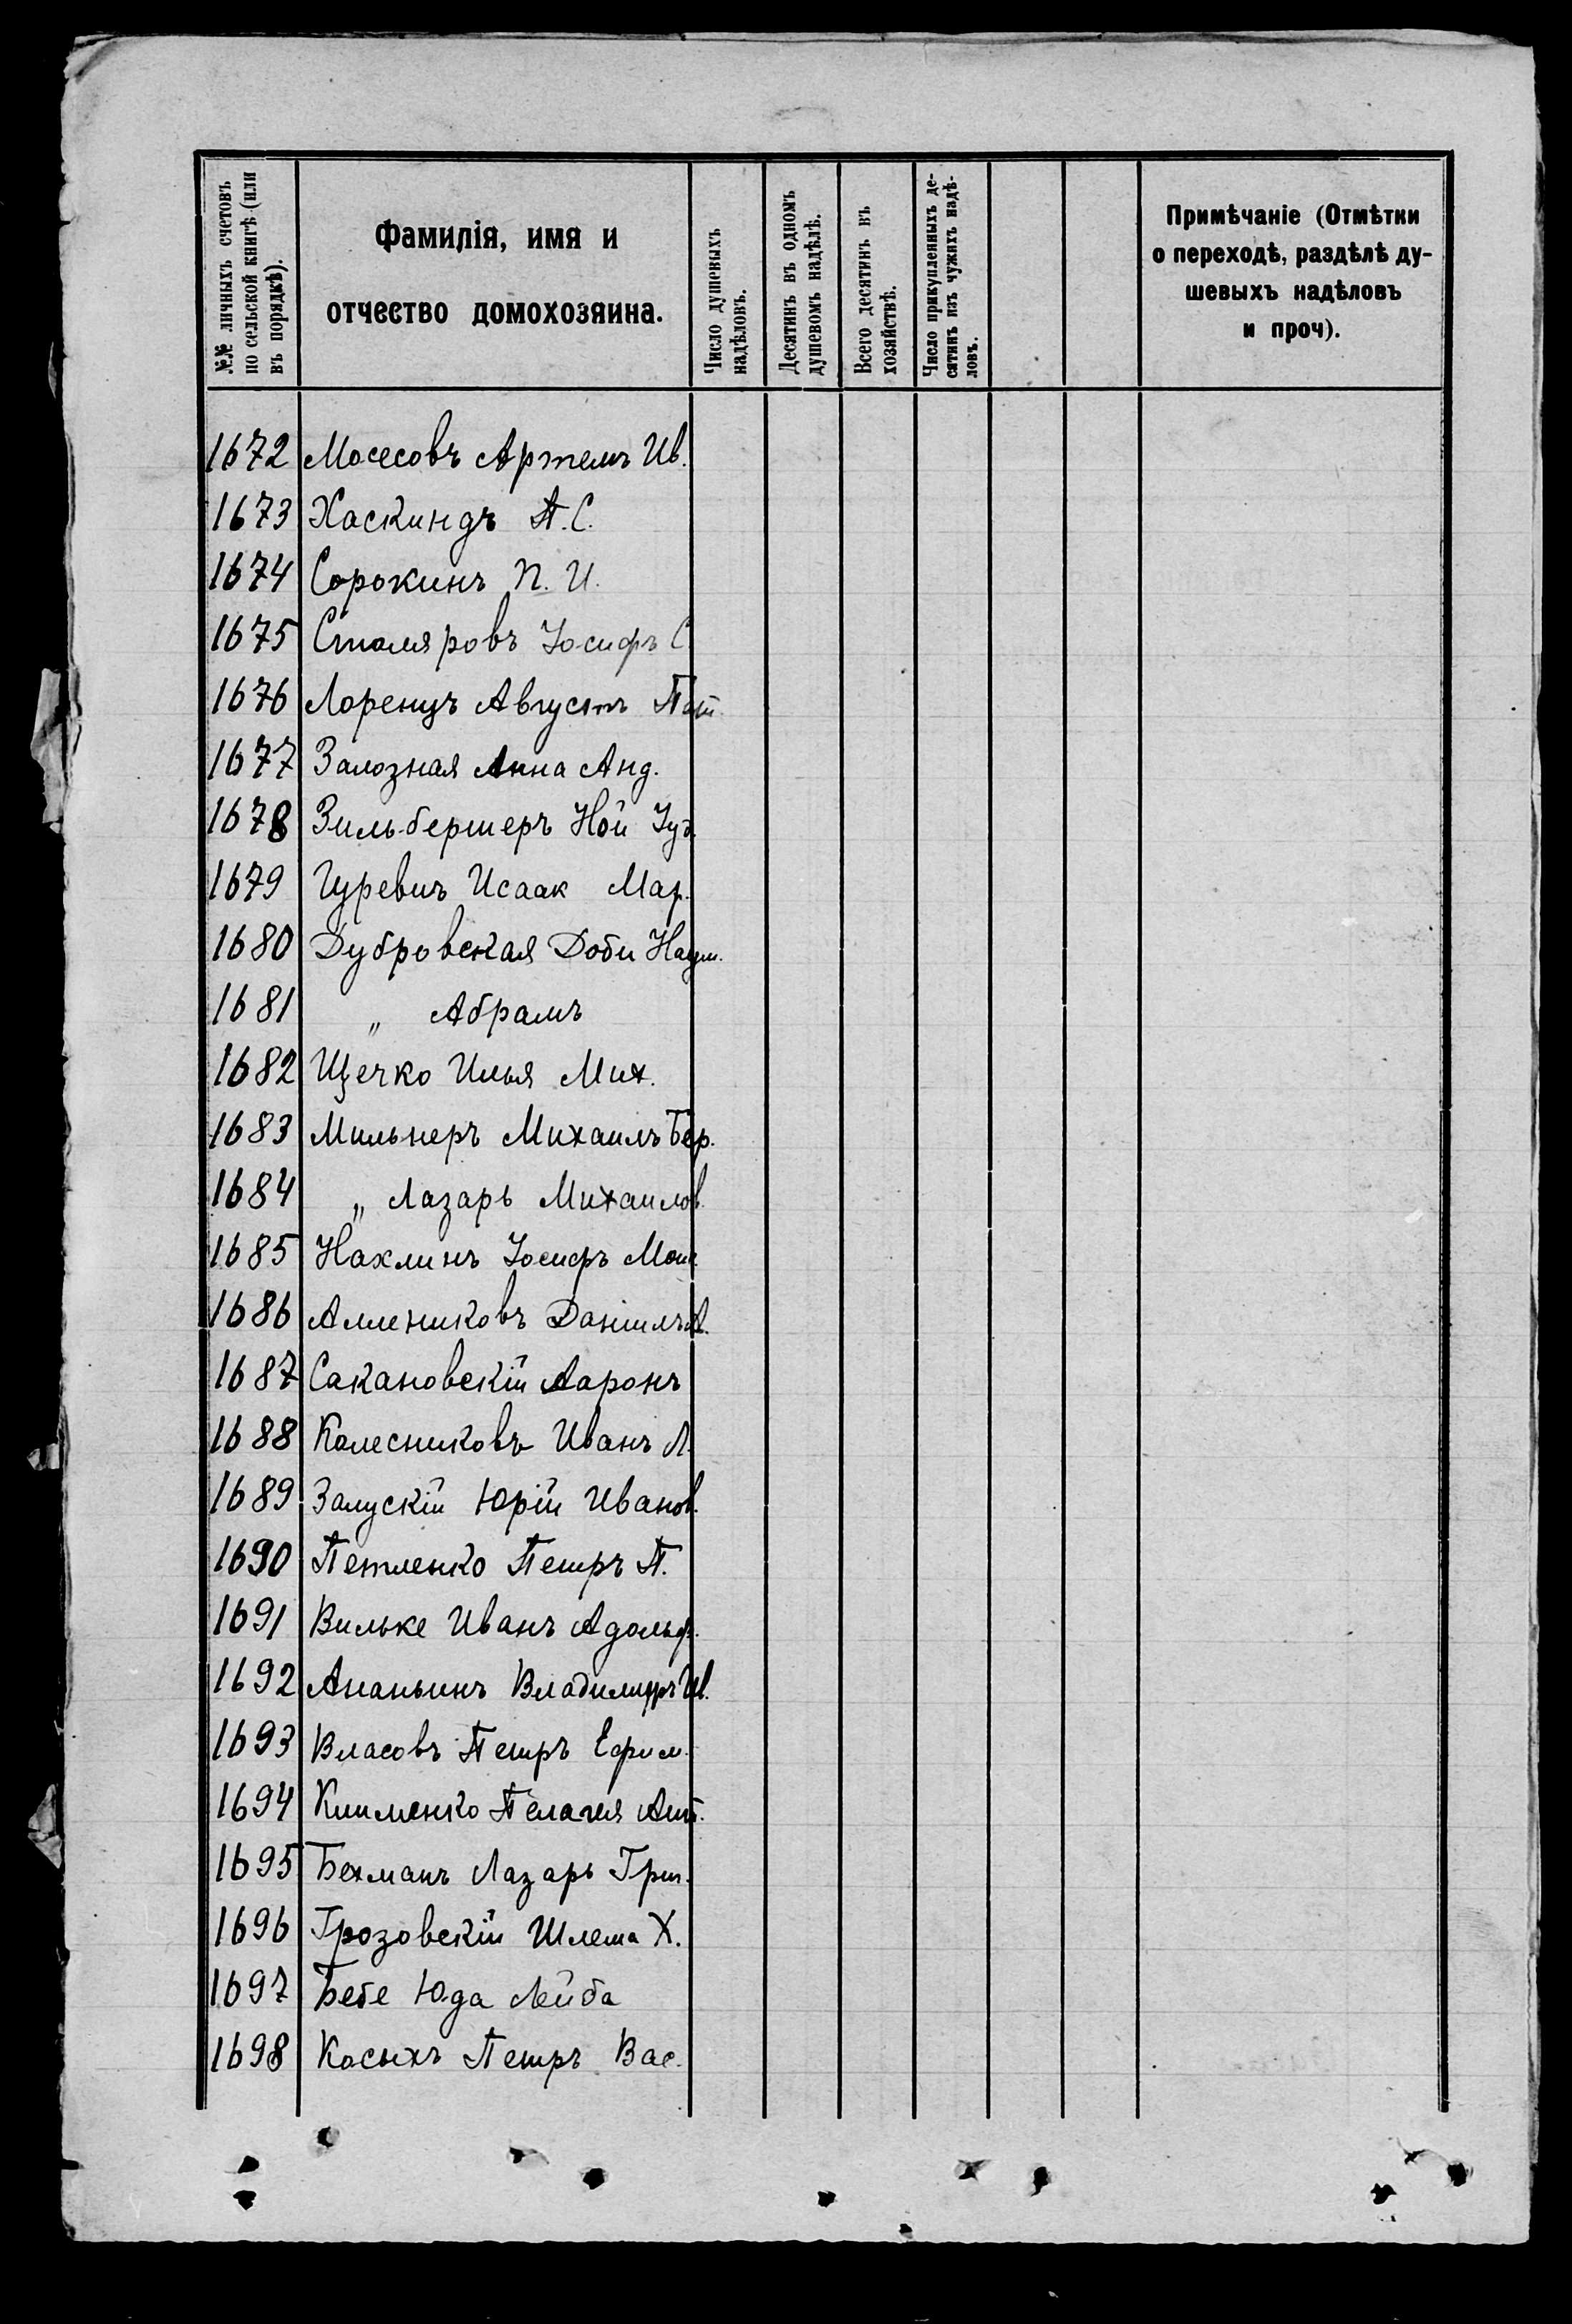 №№ личныхъ счетовъ
по сельской книгѣ (или
въ порядкѣ).
Фамилія, имя и
отчество домохозяина.
Число душевыхъ
надѣловъ.
Десятинъ въ одномъ
душевомъ надѣлѣ.
Всего десятинъ въ
хозяйствѣ.
Число прикупленныхъ де-
сятинъ изъ чужихъ надѣ-
ловъ.
Примѣчаніе (Отмѣтки
о переходѣ, раздѣлѣ ду-
шевыхъ надѣловъ
и проч).
1672 Мосесовъ Артемъ Ив.
1673 Хаскиндъ П. С.
1674 Сорокинъ П. И.
1675 Столяровъ Іосифъ С
1676 Лоренцъ Августъ
1677 Залозная Анна Анд.
1678 Зильбершеръ Ной Іуд.
1679 Гуревич Исаак Мар.
1680 Дубровская Доби Наум.
1681 „ Абрамъ
1682 Щечко Илья Мих.
1683 Мильнеръ Михаилъ Бер.
1684 „ Лазарь Михаилов.
1685 Нахлинъ Іосифъ Моис.
1686 Даниилъ А.
1687 Сакановскій Ааронъ
1688 Колесниковъ Иванъ Л.
1689 Залускій Юрій Иванов.
1690 Петленко Петръ П.
1691 Вильке Иванъ Адольф.
1692 Ананьинъ Владимиръ Ив.
1693 Власовъ Петръ Ефим.
1694 Клименко Пелагея Ант.
1695 Бехманъ Лазарь Григ.
1696 Грозовскій Шлема Х.
1697 Бебе Юда Лейба
1698 Косыхъ Петръ Вас.